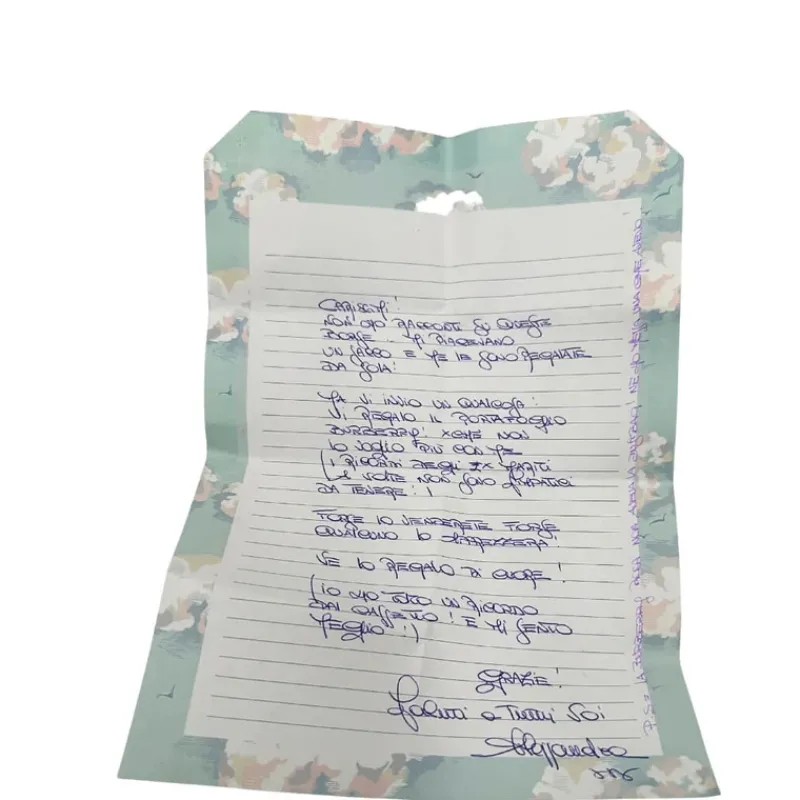 CARISSIMI!
NON HO RACCONTI SU QUESTE
BORSE .. MI PIACEVANO
UN SACCO E ME LE SONO REGALATE
DA SOLA!
MA VI INVIO UN QUALCOSA:
VI REGALO IL PORTAFOGLIO
BURBERRY! XCHÉ NON
LO VOGLIO PIÙ CON ME
(I RICORDI DEGLI EX MARITI
A VOLTE NON SONO SIMPATICI
DA TENERE!)
FORSE LO VENDERETE FORSE
QUALCUNO LO APPREZZERÀ!
VE LO REGALO DI CUORE!
(IO HO TOLTO UN RICORDO
DAL CASSETTO! E MI SENTO
MEGLIO!)
GRAZIE!
Saluti a Tutti Voi
Alessandra
P.S: LA BURBERRY